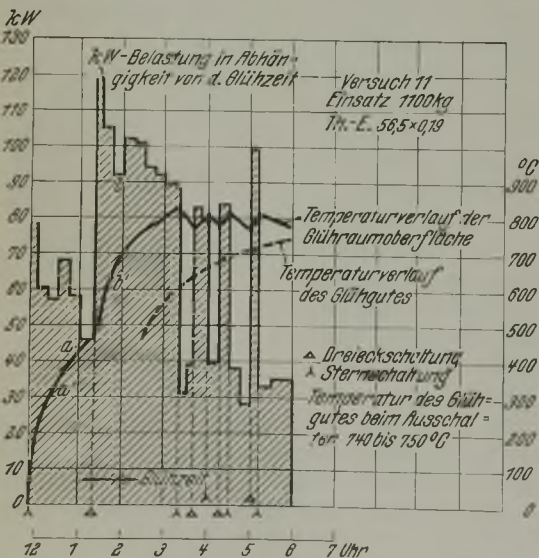 kW
130
120
110
100
90
80
70
60
50
40
30
20
10
0
kW-Belastung in Abhän-
gigkeit von d. Glühzeit
Versuch 11
Einsatz 1100kg
°C
900
800
700
600
500
400
300
200
100
0
Temperaturverlauf der
Glühraumoberfläche
Temperaturverlauf
des Glühgutes
Dreieckschaltung
Sternschaltung
Temperatur des Glüh-
gutes beim Ausschal-
ten 740 bis 750°C
a
a'
b
b'
Glühzeit
12 1 2 3 4 5 6 7 Uhr